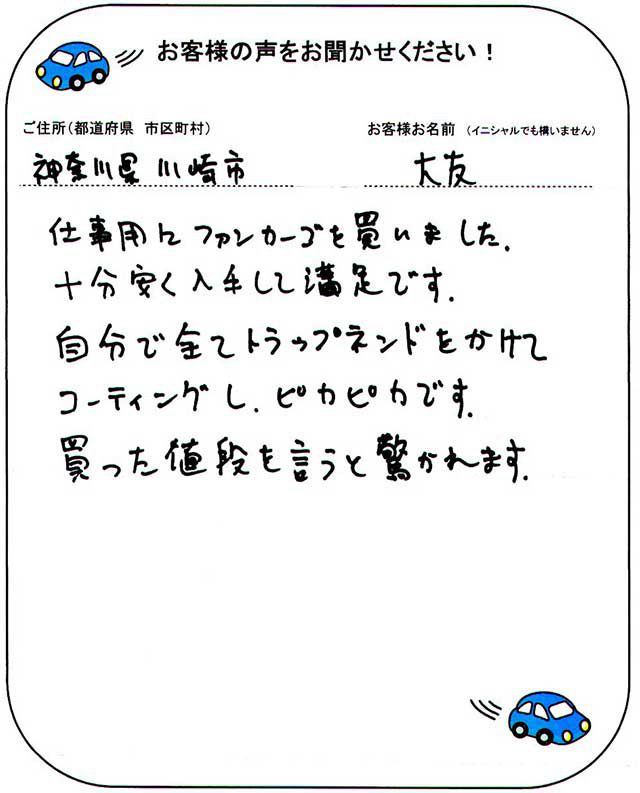 お客様の声をお聞かせください！
ご住所(都道府県 市区町村) お客様お名前 (イニシャルでも構いません)
神奈川県 川崎市 大友
仕事用にファンカーゴを買いました.
十分安く入手して満足です.
自分で全てトラップネンドをかけて
コーティングし.ピカピカです.
買った値段を言うと驚かれます.